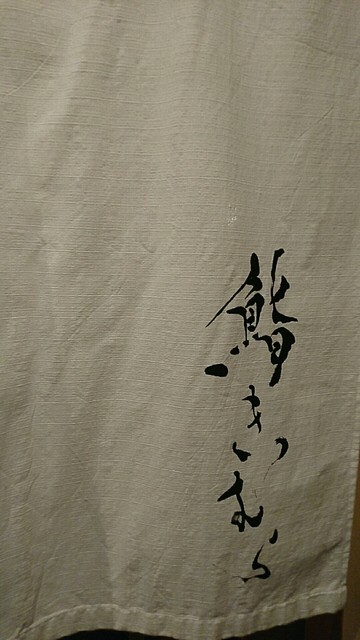 鮨きむら